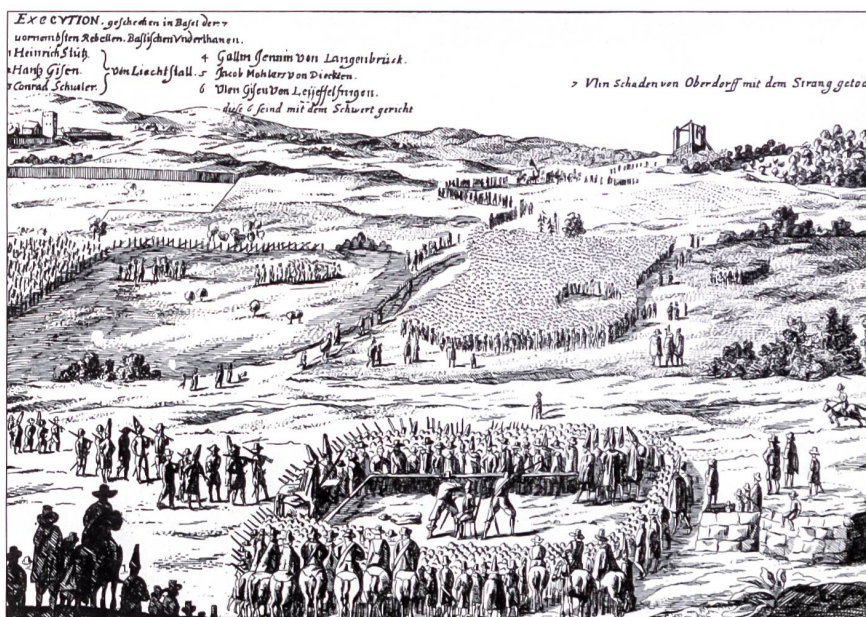 EXECVTION. geschechen in Basel der 7
vornembsten Rebellen. Baslischen Vnderthanen.
1 Heinrich Stütz.
2 Hanß Gisen. von Liechtstall.
3 Conrad Schuler.
4 Gallin Jennin von Langenbrück.
5 Jacob Mohlers von Dieckten.
6 Vlen Gisen von
diese 6 seind mit dem Schwert gericht
7 Vlin Schaden von Oberdorff mit dem Strang getod